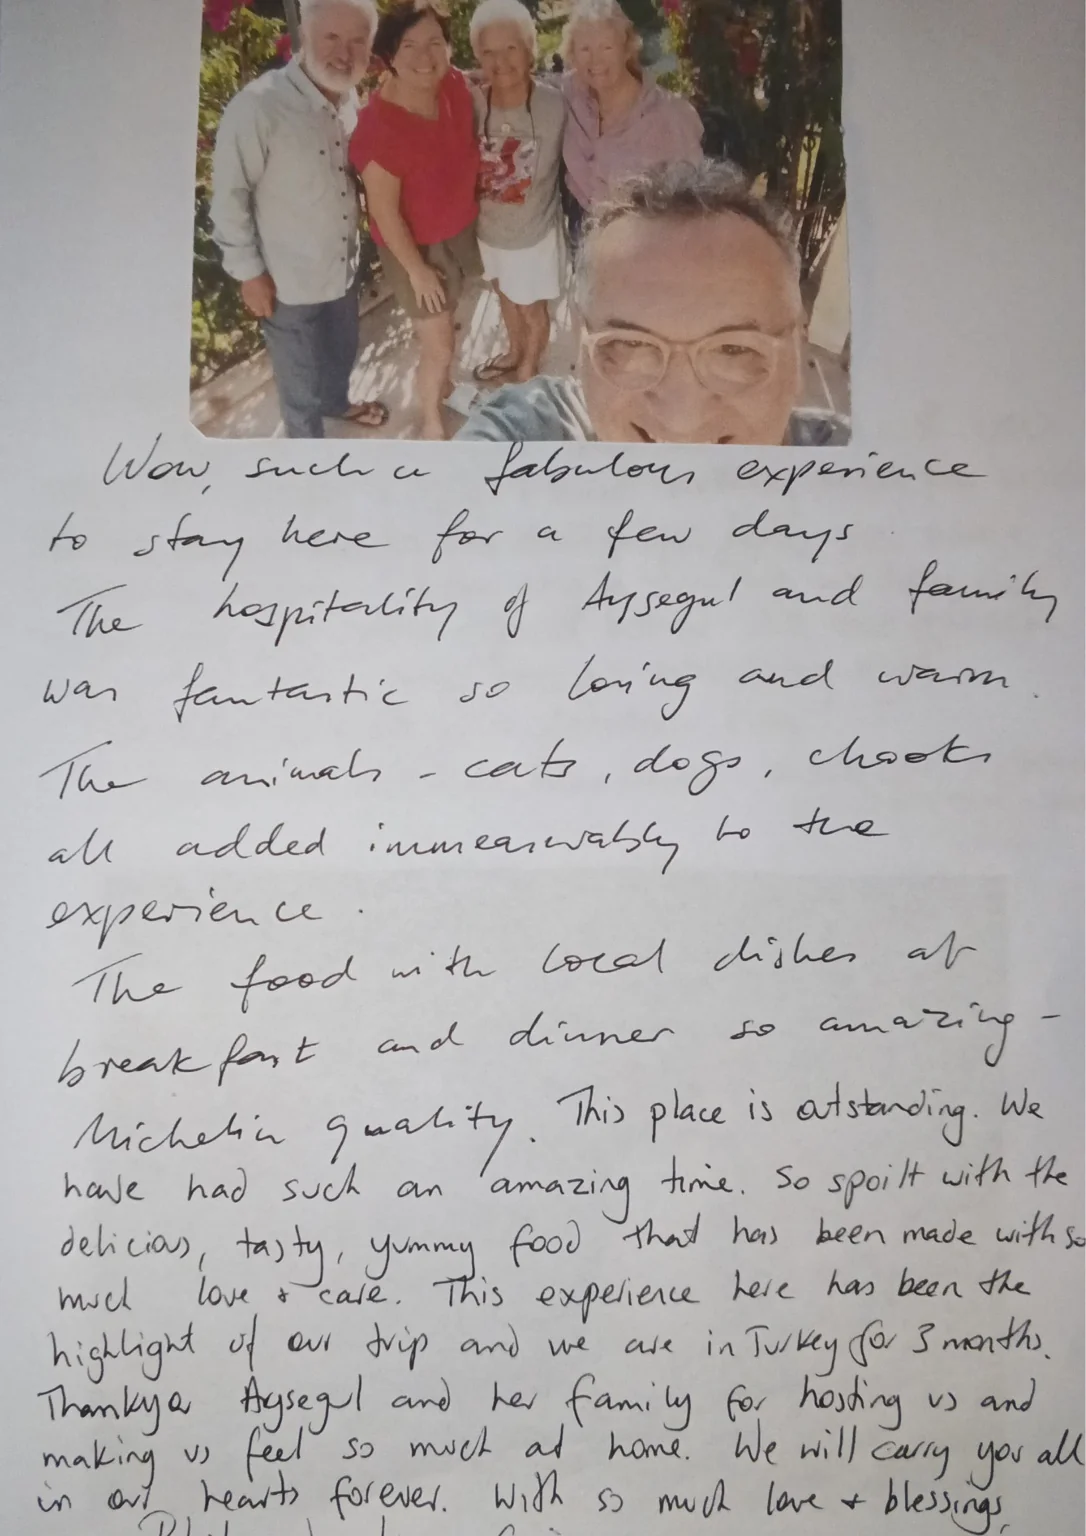 Wow, such a fabulous experience
to stay here for a few days
The hospitality of Aysegul and family
was fantastic so loving and warm.
The animals - cats, dogs, chooks
all added immeasurably to the
experience.
The food with local dishes at
breakfast and dinner so amazing -
Michelin quality. This place is outstanding. We
have had such an amazing time. So spoilt with the
delicious, tasty, yummy food that has been made with so
much love + care. This experience here has been the
highlight of our trip and we are in Turkey for 3 months.
Thankyou Aysegul and her family for hosting us and
making us feel so much at home. We will carry you all
in our hearts forever. With so much love + blessings,